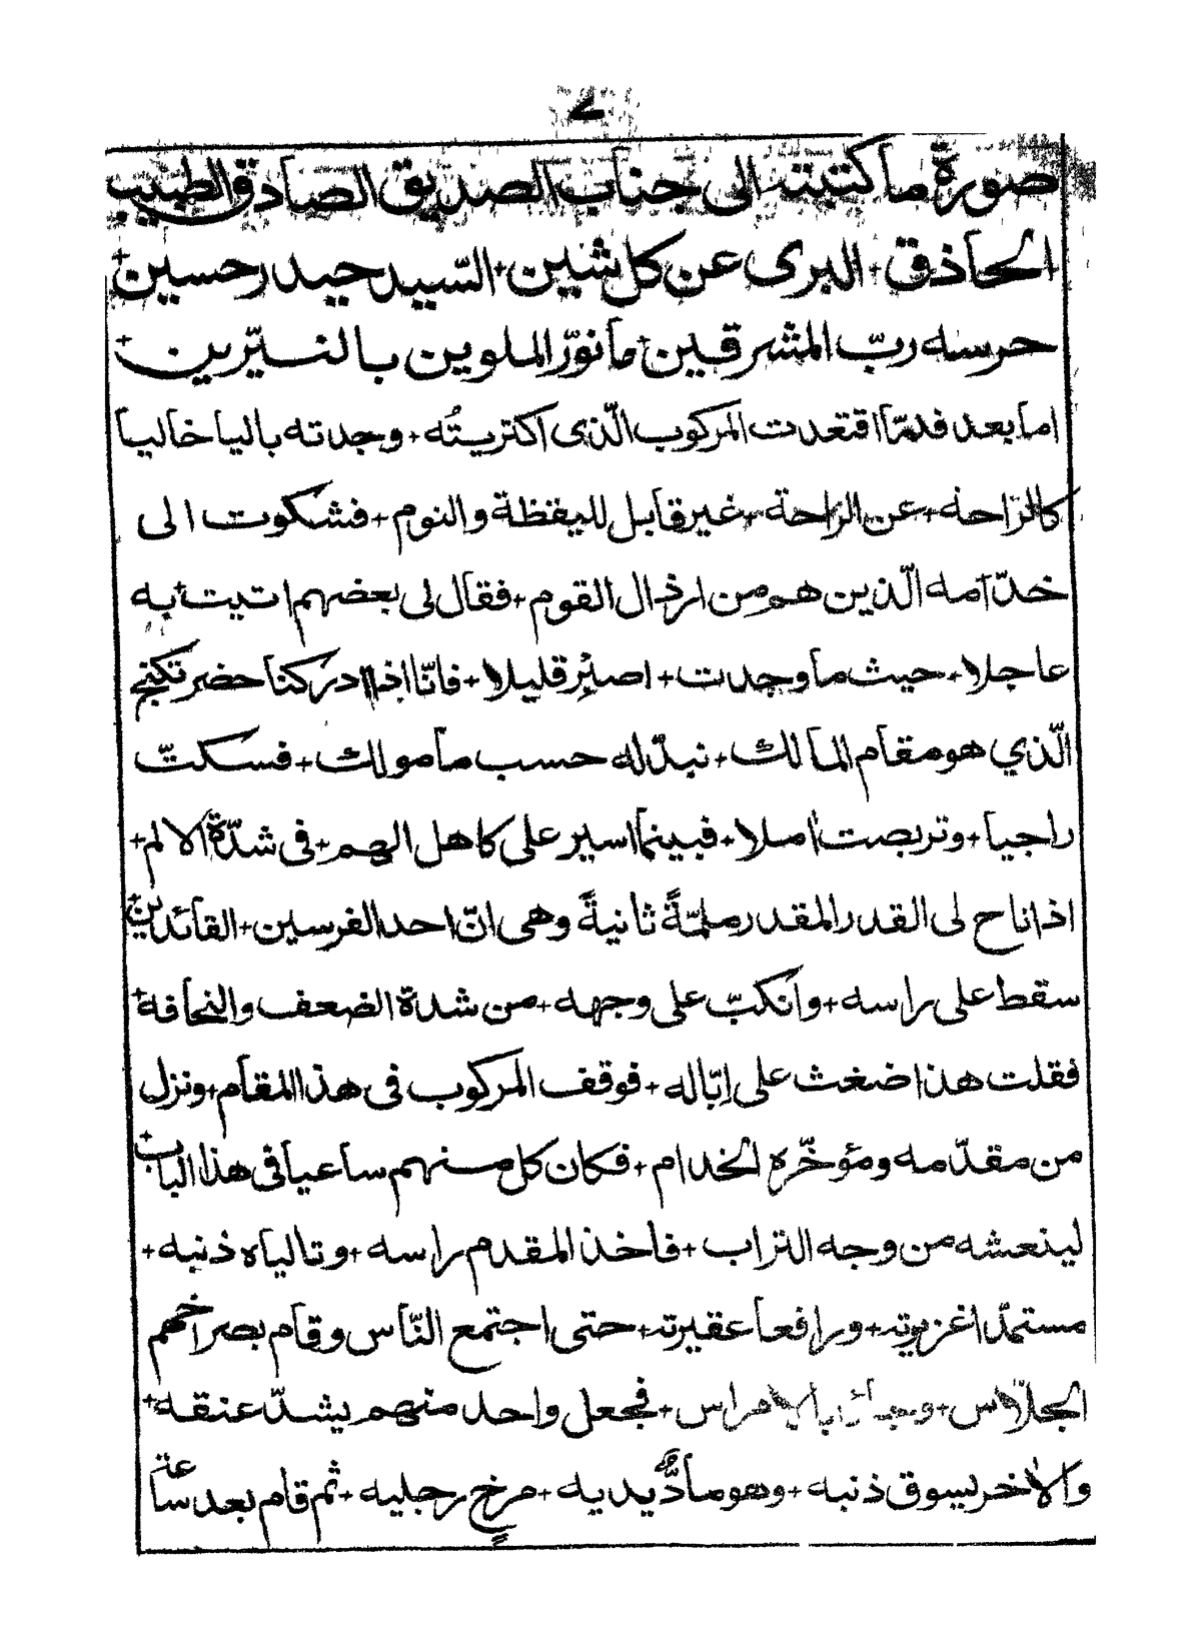 صورة ما كتبته الى جناب الصديق الصادق الطبيب
الحاذق + البرى عن كل شين + السّيد حيدر حسين +
حرسه ربّ المشرقين + ما نوّر الملوين بالنيّرين +
اما بعد فلمّا اقتعدت المركوب الّذى اكتريتُه + وجدته باليا خاليا
كالزاحفة + عن الراحة + غير قابل لليقظة والنوم + فشكوت الى
خدّامه الّذين هم من ارذال القوم + فقال لى بعضهم اتيت به
عاجلا + حيث ما وجدت + اصبِر قليلا + فانّا اذا ادركنا حضر
الّذي هو مقام المالك + نبدّله حسب مامولك + فسكتّ
راجيا + وتربصت املا + فبينما اسير على كاهل الهم + فى شدّة الالم +
اذ اناح لى القدر المقدر ملمّةً ثانيةً وهى انّ احد الفرسين + القائدين +
سقط على راسه + وانكبّ على وجهه + من شدة الضعف والنحافة +
فقلت هذا ضغث على اِبّاله + فوقف المركوب فى هذا المقام + ونزل
من مقدّمه ومؤخّره الخدام + فكان كل منهم ساعيا فى هذا الباب +
لينعشه من وجه التراب + فاخذ المقدم راسه + وتالياه ذنبه +
مستمدّا غزيوته + ورافعا عقيرته + حتى اجتمع النّاس وقام بصراخهم
الجلّاس + بالامراس + فجعل واحد منهم يشدّ عنقه +
والاخر يسوق ذنبه + وهو مادٌّ يديه + مرخ رجليه + ثم قام بعد ساعة